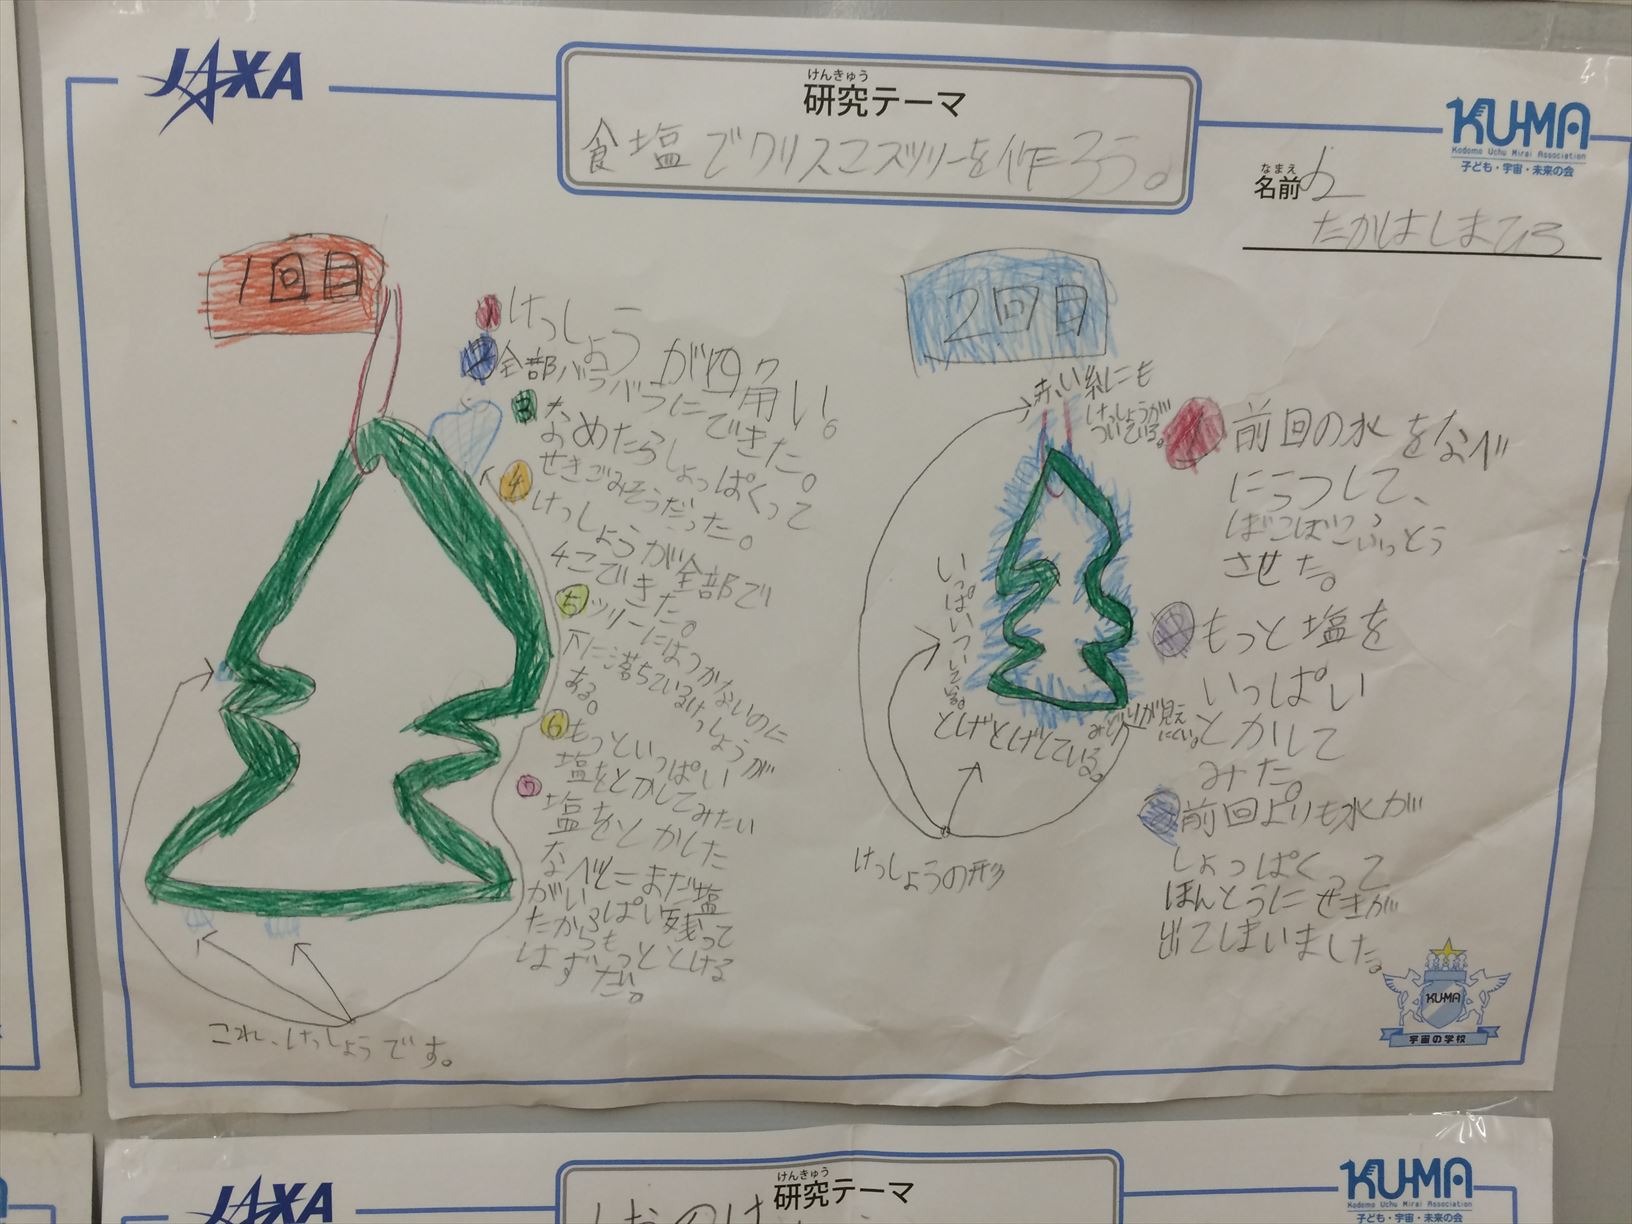 JAXA
けんきゅう
研究テーマ
食塩でクリスマスツリーを作ろう。
KU-MA
Kodomo Uchu Mirai Association
子ども・宇宙・未来の会
なまえ
名前
たかはしまひろ
1回目
1 けっしょうが四角い。
2 全部バラバラにできた。
3 なめたらしょっぱくって
せきごみそうだった。
4 けっしょうが全部で
4こできた。
5 ツリーにはつかないのに
下に落ちているけっしょうが
ある。
6 もっといっぱい
塩をとかしてみたい
7 塩をとかした
なべにまだ塩
がいっぱい残って
たからもっととける
はずだ。
これ、けっしょうです。
2回目
赤い糸にも
けっしょうが
ついている。
いっぱいついている。
とげとげしている。
みどりが見え
にくい。
けっしょうの形
1 前回の水をなべ
にうつして、
ぼこぼこふっとう
させた。
2 もっと塩を
いっぱい
とかして
みた。
3 前回よりも水が
しょっぱくって
ほんとうにせきが
出てしまいました。
KU-MA
宇宙の学校
JAXA
けんきゅう
研究テーマ
KU-MA
Kodomo Uchu Mirai Association
子ども・宇宙・未来の会